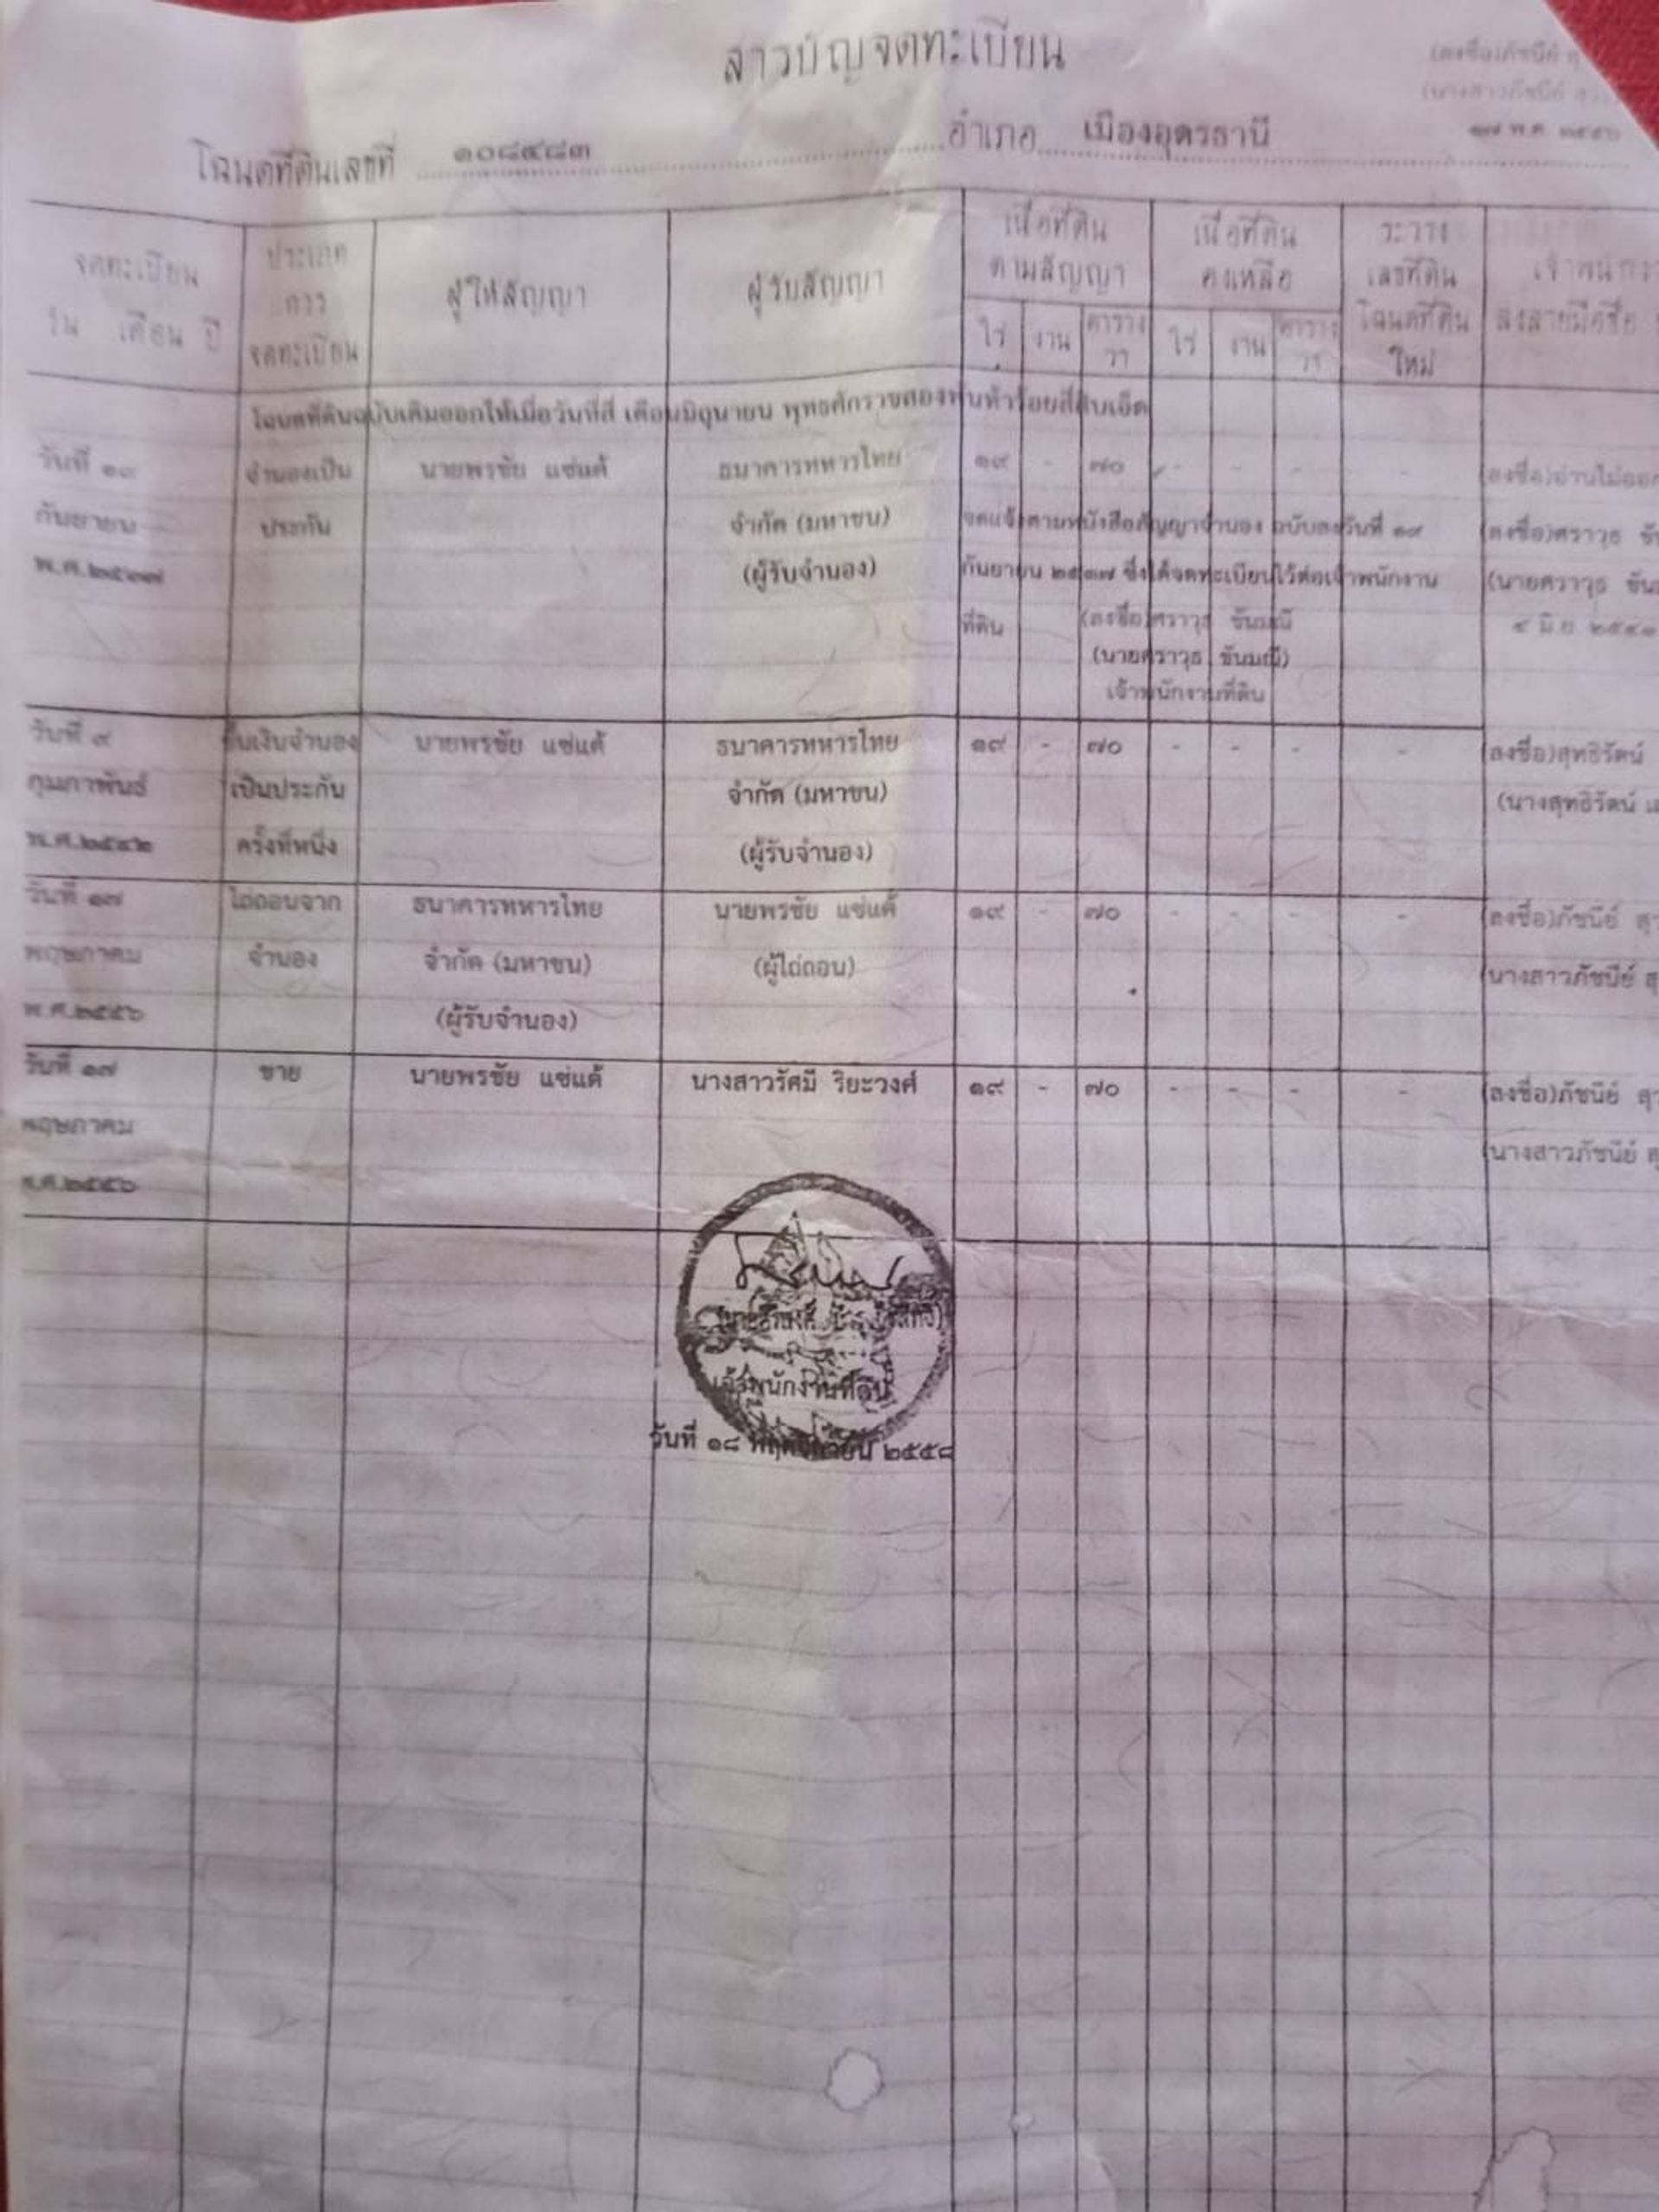 สารบัญจดทะเบียน
(ลงชื่อ)ภัชนีย์
(นางสาวภัชนีย์
๑๗ พ.ค. ๒๕๕๖
โฉนดที่ดินเลขที่ ๑๐๘๔๘๓ อำเภอ เมืองอุดรธานี
จดทะเบียน วัน เดือน ปี
ประเภทการจดทะเบียน
ผู้ให้สัญญา
ผู้รับสัญญา
เนื้อที่ดินตามสัญญา
ไร่ งาน ตารางวา
เนื้อที่ดินคงเหลือ
ไร่ งาน ตารางวา
ระวาง เลขที่ดิน โฉนดที่ดินใหม่
ลงลายมือชื่อ
โฉนดที่ดินฉบับเดิมออกให้เมื่อวันที่สี่ เดือนมิถุนายน พุทธศักราชสองพันห้าร้อยสี่สิบเอ็ด
วันที่ ๑๙ จำนองเป็น นายพรชัย แซ่แต้ ธนาคารทหารไทย ๑๙ - ๗๐ - - - - (ลงชื่อ)อ่านไม่ออก
กันยายน ประกัน จำกัด (มหาชน) จดแจ้งตามหนังสือสัญญาจำนอง ฉบับลงวันที่ ๑๙ (ลงชื่อ)ศราวุธ
พ.ศ.๒๕๓๗ (ผู้รับจำนอง) กันยายน ๒๕๓๗ ซึ่งได้จดทะเบียนไว้ต่อเจ้าพนักงาน (นายศราวุธ
ที่ดิน (ลงชื่อ)ศราวุธ ขันมณี ๔ มิ.ย. ๒๕๔๑
(นายศราวุธ ขันมณี)
เจ้าพนักงานที่ดิน
วันที่ ๙ ขึ้นเงินจำนอง นายพรชัย แซ่แต้ ธนาคารทหารไทย ๑๙ - ๗๐ - - - - (ลงชื่อ)สุทธิรัตน์
กุมภาพันธ์ เป็นประกัน จำกัด (มหาชน) (นางสุทธิรัตน์
พ.ศ.๒๕๔๒ ครั้งที่หนึ่ง (ผู้รับจำนอง)
วันที่ ๑๗ ไถ่ถอนจาก ธนาคารทหารไทย นายพรชัย แซ่แต้ ๑๙ - ๗๐ - - - - (ลงชื่อ)ภัชนีย์
พฤษภาคม จำนอง จำกัด (มหาชน) (ผู้ไถ่ถอน) (นางสาวภัชนีย์
พ.ศ.๒๕๕๖ (ผู้รับจำนอง)
วันที่ ๑๗ ขาย นายพรชัย แซ่แต้ นางสาวรัศมี ริยะวงศ์ ๑๙ - ๗๐ - - - - (ลงชื่อ)ภัชนีย์
พฤษภาคม (นางสาวภัชนีย์
พ.ศ.๒๕๕๖
เจ้าพนักงานที่ดิน
วันที่ ๑๘ พฤศจิกายน ๒๕๕๘